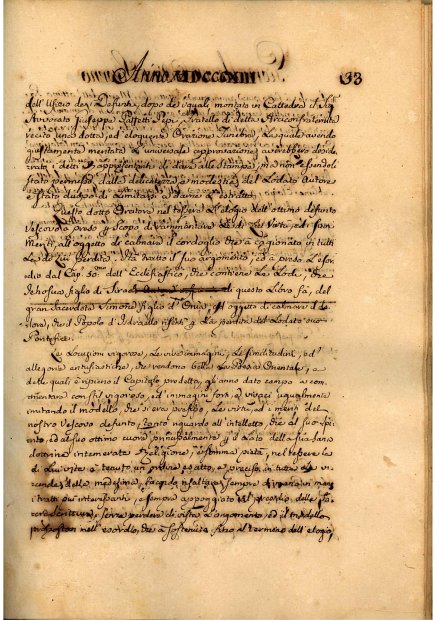 Anno MDCCCXIII 33
dell'Ufizio de' Defunti, dopo de' quali montato in Cattedra il Sig.
Avvocato Giuseppe Fratello di detta Arciconfraternita
recitò una dotta, ed eloquente Orazione Funebre, la quale avendo
giustamente meritata l'universale approvazione, avrebbero deside-
rato i detti rappresentanti di dare alle Stampe, ma non essendoli
stato permesso dalla delicatezza, e modestia del Lodato Autore
è stato duopo di limitarsi a darne l'estratto.
Questo dotto Oratore nel tessere l'elogio dell'ottimo defunto
Vescovo à preso per scopo di rammentare le di Lui Virtù, ed
all'oggetto di calmare il cordoglio che à cagionato in tutti
la di Lui perdita. Ha tratto il suo argomento, ed à preso l'esor-
dio dal Cap. 50. dell'Ecclesiastico, che contiene la Lode, che
figlio di Sirach di questo Libro fà, del
gran Sacerdote Simone figlio d'Onia, all'oggetto di calmare il do-
lore, che il Popolo d'Isdraello per la perdita del Lodato suo
Pontefice.
Le Locuzioni vigorose, le vive immagini, le similitudini, ed
allegorie entusiastiche, che rendono bella la Poesia Orientale,
delle quali è ripieno il Capitolo predetto, gli anno dato campo a com-
mentare con stil vigoroso, ed immagini forti, e vivaci ugualmente
imitando il modello, che si era prefisso, le virtù, ed i meriti del
nostro Vescovo defunto, tanto riguardo all'intelletto, che al suo spi-
rito, ed al suo ottimo cuore, principalmente per il Lato della sua sana
dottrina intemerata Religione, e somma pietà, nel tessere la
di Lui vita à tenuto un ordine esatto, e preciso in tutte le vi-
cende della medesima, facendo risaltare sempre
i tratti più interessanti, e sempre appoggiato
sacre Scritture, senza perdere di vista l'argomento, ed il modello
propostosi nell'esordio, che à sostenuto fino al termine dell'elogio,